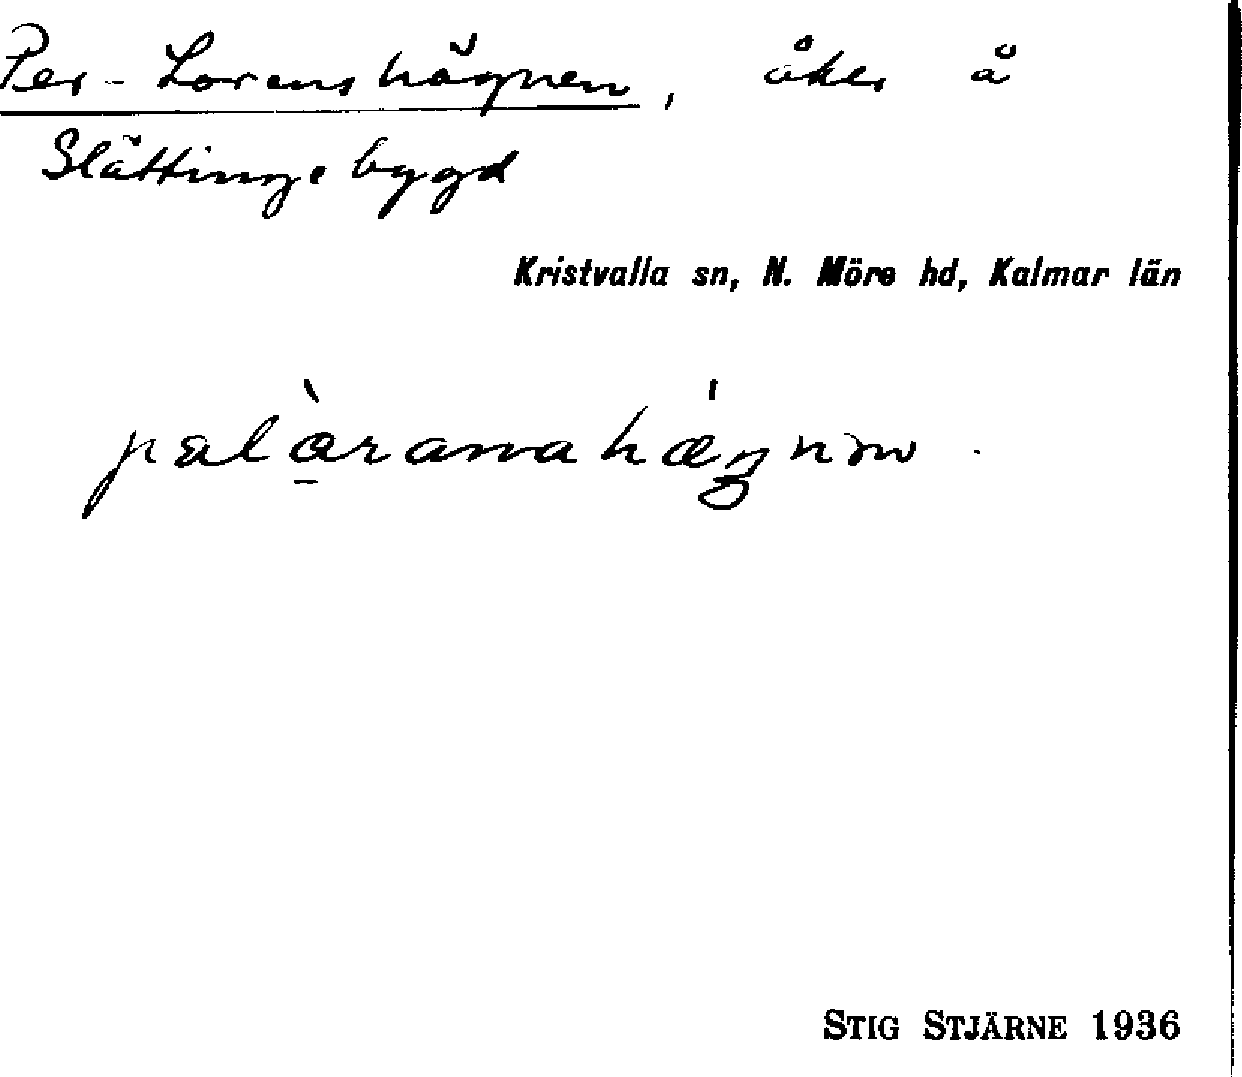 Per-Lorenshägnen, åker å
Slättinge bygd
Kristvalla sn, N. Möre hd, Kalmar län
STIG STJÄRNE 1936